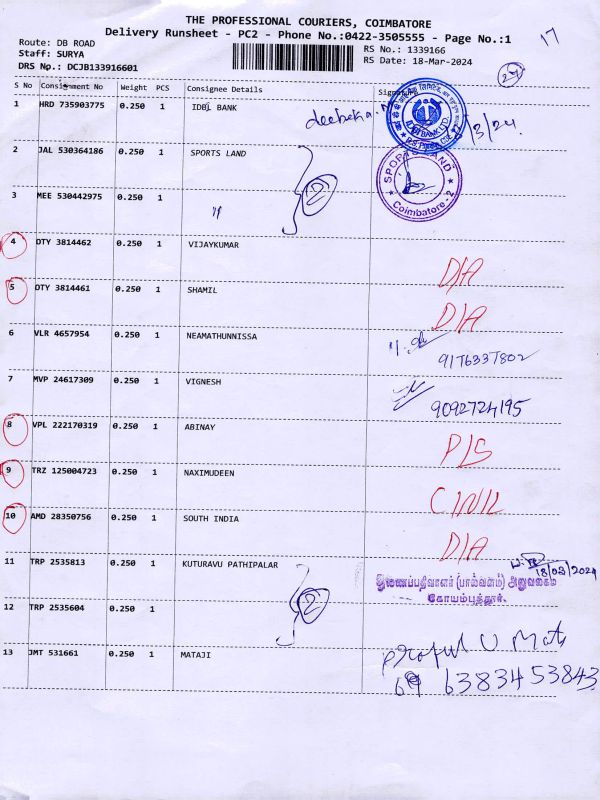 THE PROFESSIONAL COURIERS, COIMBATORE
Delivery Runsheet - PC2 - Phone No.:0422-3505555 - Page No.:1
17
Route: DB ROAD
Staff: SURYA
DRS Np.: DCJB133916601
RS No.: 1339166
RS Date: 18-Mar-2024
S No Consignment No Weight PCS Consignee Details Signature
1 HRD 735903775 0.250 1 IDBI BANK
/3/24
2 JAL 530364186 0.250 1 SPORTS LAND
2
SPORTS LAND
Coimbatore - 2
3 MEE 530442975 0.250 1 "
4 OTY 3814462 0.250 1 VIJAYKUMAR
D/A
5 OTY 3814461 0.250 1 SHAMIL
D/A
6 VLR 4657954 0.250 1 NEAMATHUNNISSA
9176337802
7 MVP 24617309 0.250 1 VIGNESH
9092724195
8 VPL 222170319 0.250 1 ABINAY
P/S
9 TRZ 125004723 0.250 1 NAXIMUDEEN
C/N/L
10 AMD 28350756 0.250 1 SOUTH INDIA
D/A
11 TRP 2535813 0.250 1 KUTURAVU PATHIPALAR
18/03/2024
துணைப்பதிவாளர் (பால்வளம்) அலுவலகம்
கோயம்புத்தூர்.
2
12 TRP 2535604 0.250 1
13 JMT 531661 0.250 1 MATAJI
6383453843